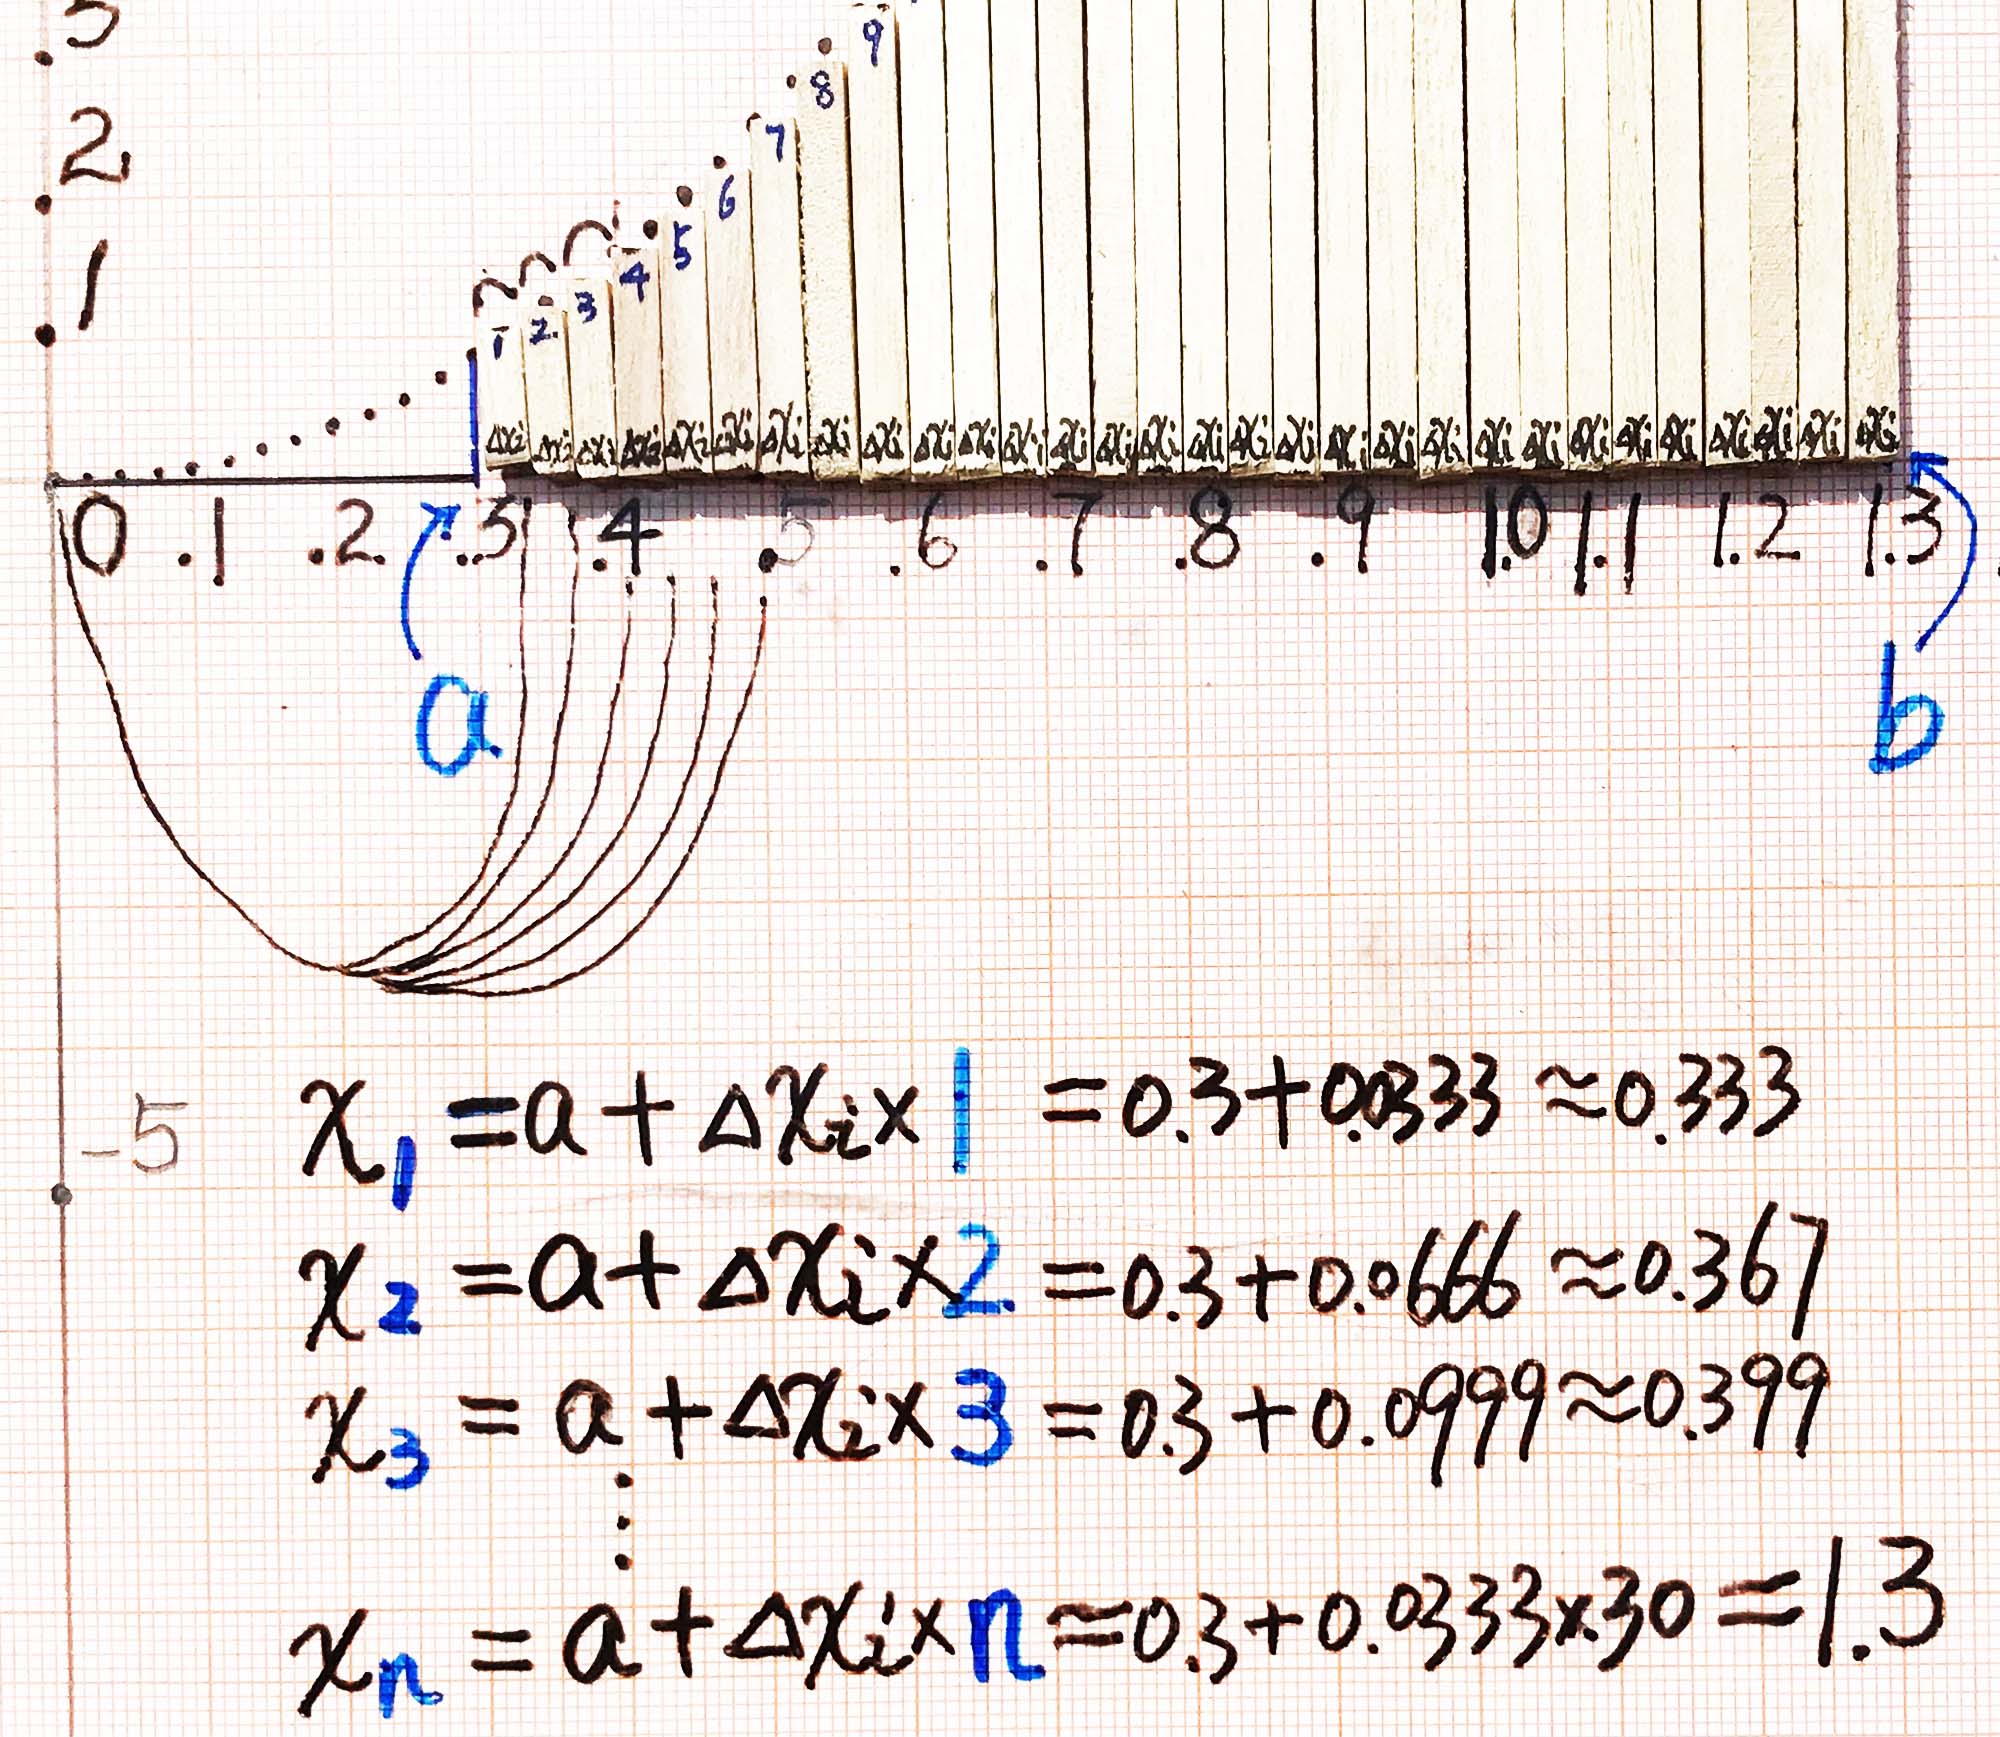 .3
.2
.1
1 2 3 4 5 6 7 8 9
Δxi Δxi Δxi Δxi Δxi Δxi Δxi Δxi Δxi Δxi Δxi Δxi Δxi Δxi Δxi Δxi Δxi Δxi Δxi Δxi Δxi Δxi Δxi Δxi Δxi Δxi Δxi Δxi Δxi Δxi
0 .1 .2 .3 .4 .5 .6 .7 .8 .9 1.0 1.1 1.2 1.3
a b
-5
x₁ = a + Δxi × 1 = 0.3 + 0.0333 ≈ 0.333
x₂ = a + Δxi × 2 = 0.3 + 0.0666 ≈ 0.367
x₃ = a + Δxi × 3 = 0.3 + 0.0999 ≈ 0.399
⋮
xₙ = a + Δxi × n ≈ 0.3 + 0.0333 × 30 = 1.3